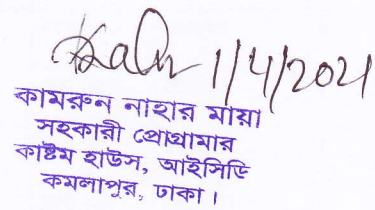 1/4/2021
কামরুন নাহার মায়া
সহকারী প্রোগ্রামার
কাষ্টম হাউস, আইসিডি
কমলাপুর, ঢাকা।